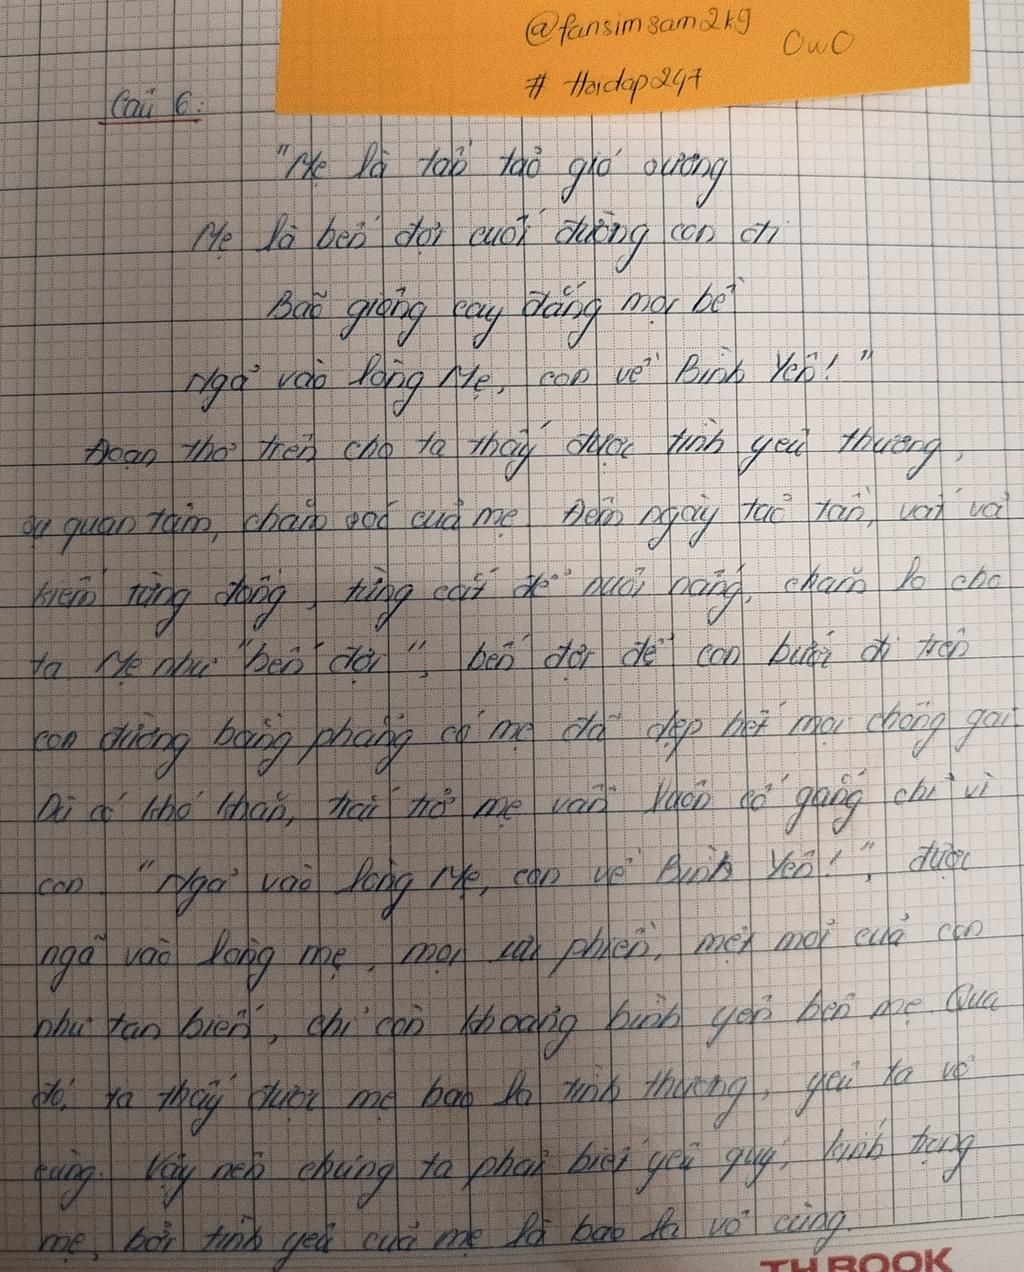 @fansimsam2kg
OwO
# Hoidap247
Câu 6:
"Mẹ là tần tảo gió sương
Mẹ là bến đợi cuối đường con đi
Bão giông cay đắng mọi bề
Ngả vào lòng Mẹ, con về Bình Yên!"
Đoạn thơ trên cho ta thấy được tình yêu thương,
sự quan tâm, chăm sóc của mẹ. Đêm ngày tảo tần, vất vả
kiếm từng đồng, từng cắt để nuôi nấng, chăm lo cho
ta. Mẹ như "bến đợi", bến đợi để con bước đi trên
con đường bằng phẳng có mẹ đã dẹp hết mọi chông gai.
Dù có khó khăn, trái trở mẹ vẫn luôn cố gắng chỉ vì
con. "Ngả vào lòng Mẹ, con về Bình Yên!", được
ngả vào lòng mẹ, mọi ưu phiền, mệt mỏi của con
như tan biến, chỉ còn khoảng bình yên bên mẹ. Qua
đó, ta thấy được mẹ bao la tình thương, yêu ta vô
cùng. Vậy nên chúng ta phải biết yêu quý, kính trọng
mẹ, bởi tình yêu của mẹ là bao la vô cùng.
TH BOOK